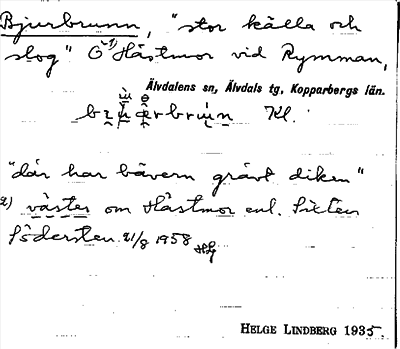 Bjurbrunn, "stor källa och
skog" Ö 1) Hästmor vid Rymman,
Älvdalens sn, Älvdals tg, Kopparbergs län.
Kl.
"där har bävern grävt diken"
1) väster om Hästmor enl. Sixten
Södersten 21/8 1958 HLg
HELGE LINDBERG 1935.